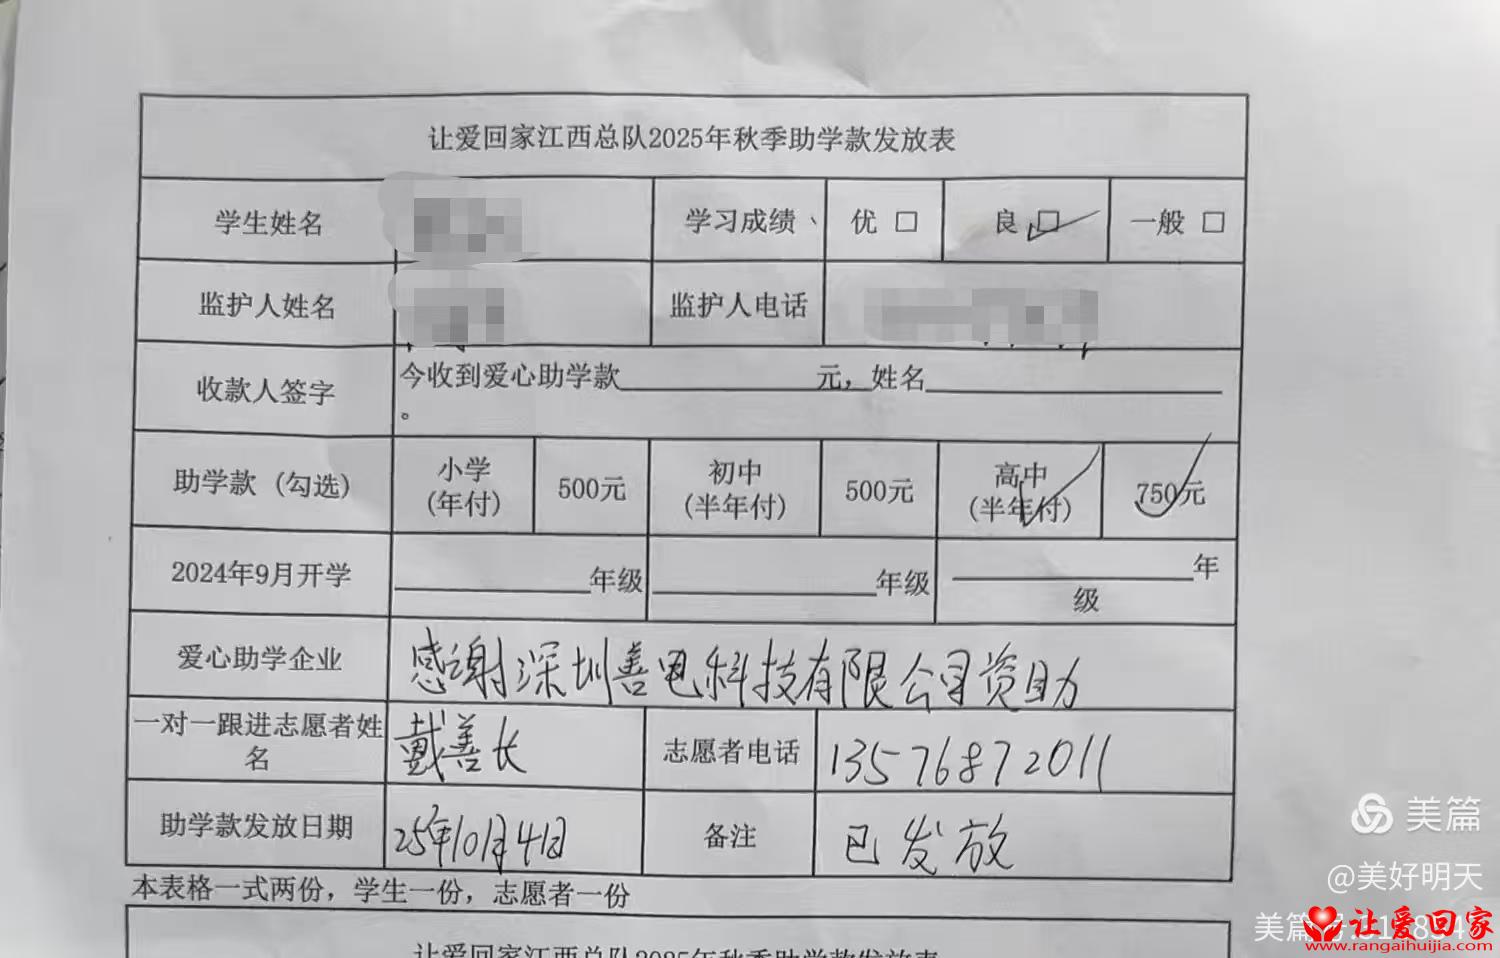 让爱回家江西总队2025年秋季助学款发放表
学生姓名 学习成绩 优 □ 良 □ 一般 □
监护人姓名 监护人电话
收款人签字 今收到爱心助学款________元，姓名________
。
助学款（勾选） 小学（年付） 500元 初中（半年付） 500元 高中（半年付） 750元
2024年9月开学 ________年级 ________年级 ________年级
爱心助学企业 感谢深圳善电科技有限公司资助
一对一跟进志愿者姓名 戴善长 志愿者电话 13576872011
助学款发放日期 25年10月4日 备注 已发放
本表格一式两份，学生一份，志愿者一份
让爱回家江西总队2025年秋季助学款发放表
美篇
@美好明天
美篇号
让爱回家
www.rangaihuijia.com